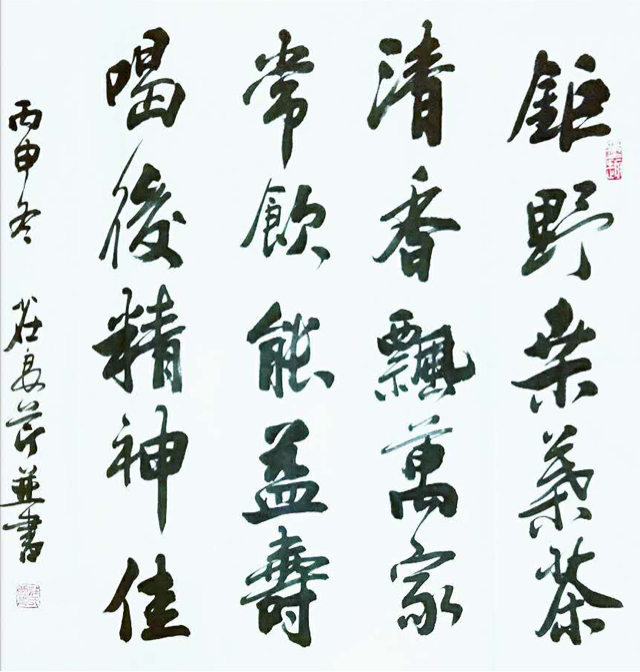 鉅野桑葉茶
清香飄萬家
常飲能益壽
喝後精神佳
丙申冬 並書